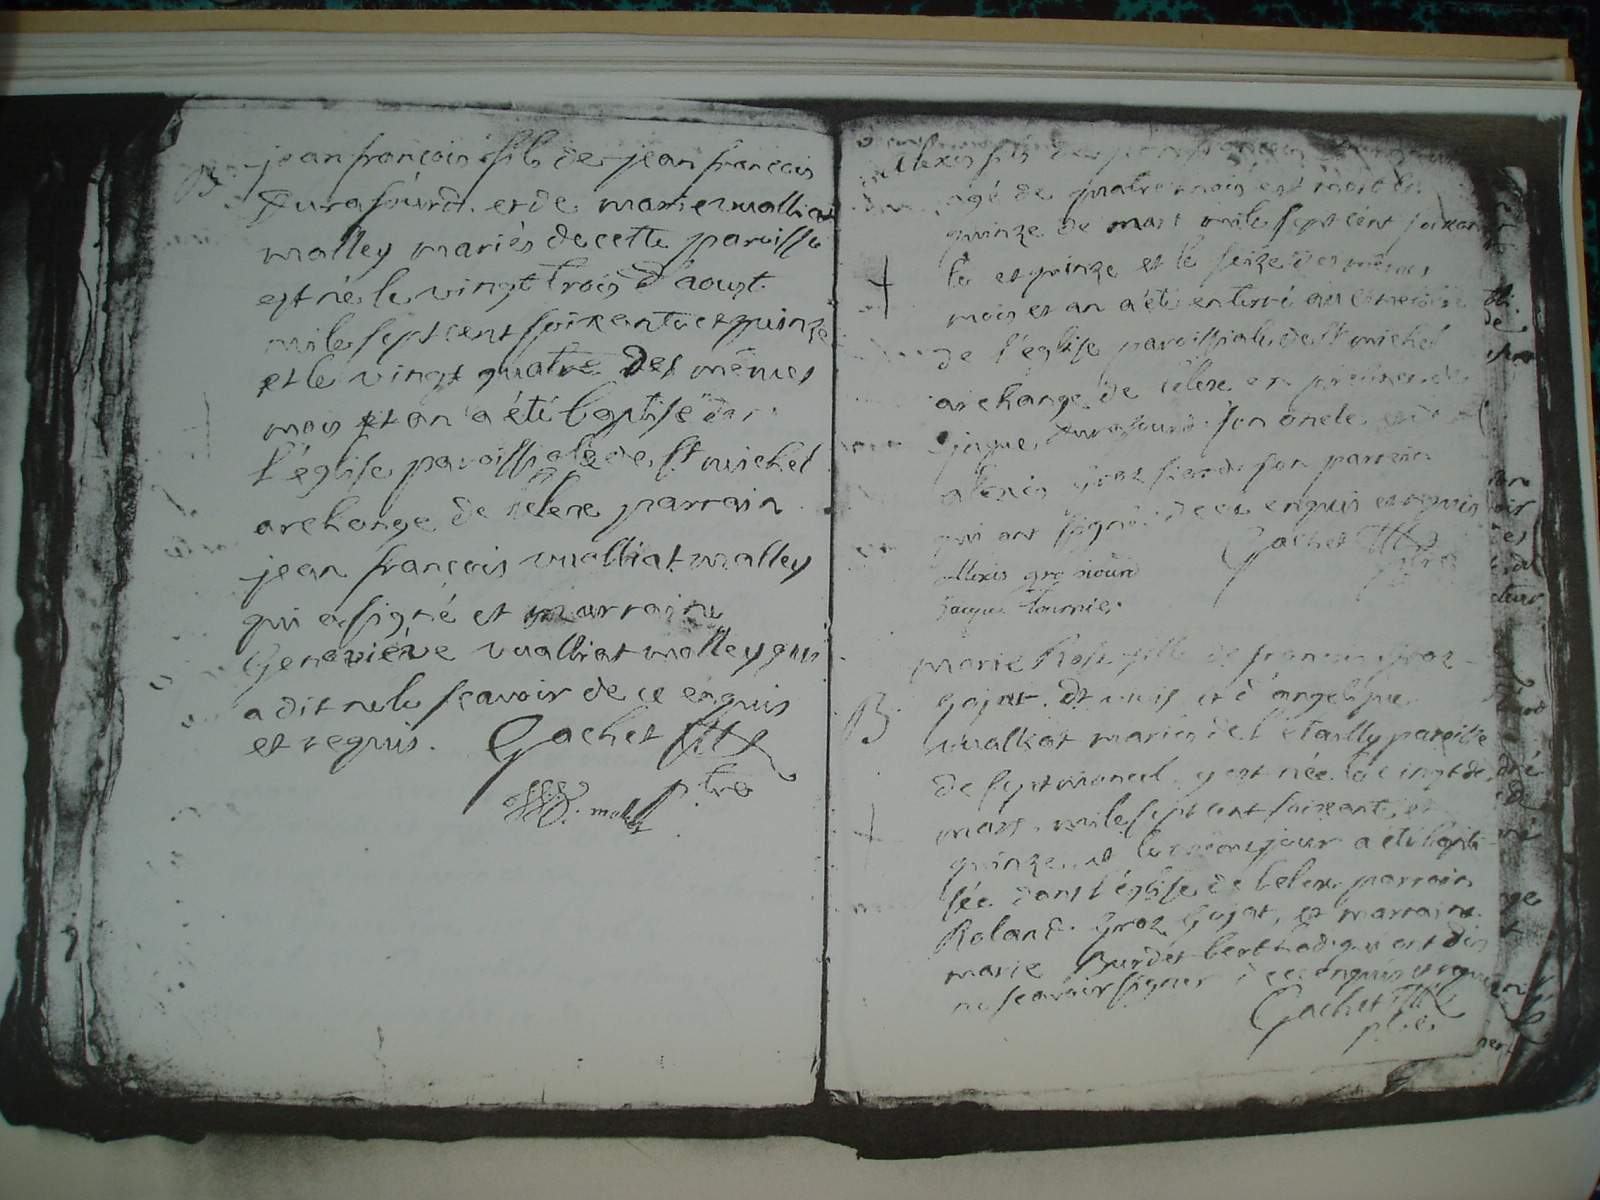 B. jean françois fils de jean françois
Durafourd et de marie vualliat
malley mariés de cette paroisse
est né le vingt trois d'aoust
mile sept cent soixante et quinze
et le vingt quatre des mêmes
mois et an a été baptisé dans
l'église paroissiale de st michel
archange de lélex parrain
jean françois vualliat malley
qui a signé et marraine
Geneviéve vualliat malley qui
a dit ne le sçavoir de ce enquis
et requis. Gachet
ptre
Alexis fils de jean françois
agé de quatre mois est mort le
quinze de mars mile sept cent soixan
te et quinze et le seize des mêmes
mois et an a été enterré au cimetière
de l'église paroissiale de st michel
archange de lélex en présence de
jaque Durafourd son oncle et d
alexis groz fiord son parrein
qui ont signé de ce enquis et requis
Gachet
ptre
Alexis gro
jaque fournier
marie Rose fille de francois Groz
B. Gojat et d'angelique
vualliat mariés de l'etailly paroisse
de septmoncel y est née le vingt de
mars mile sept cent soixante et
quinze et le même jour a été bapti
sée dans l'église de lelex parrain
Roland Groz Gojat, et marraine
marie Burdet berthod qui ont dit
ne sçavoir signer de ce enquis et requis
Gachet
ptre